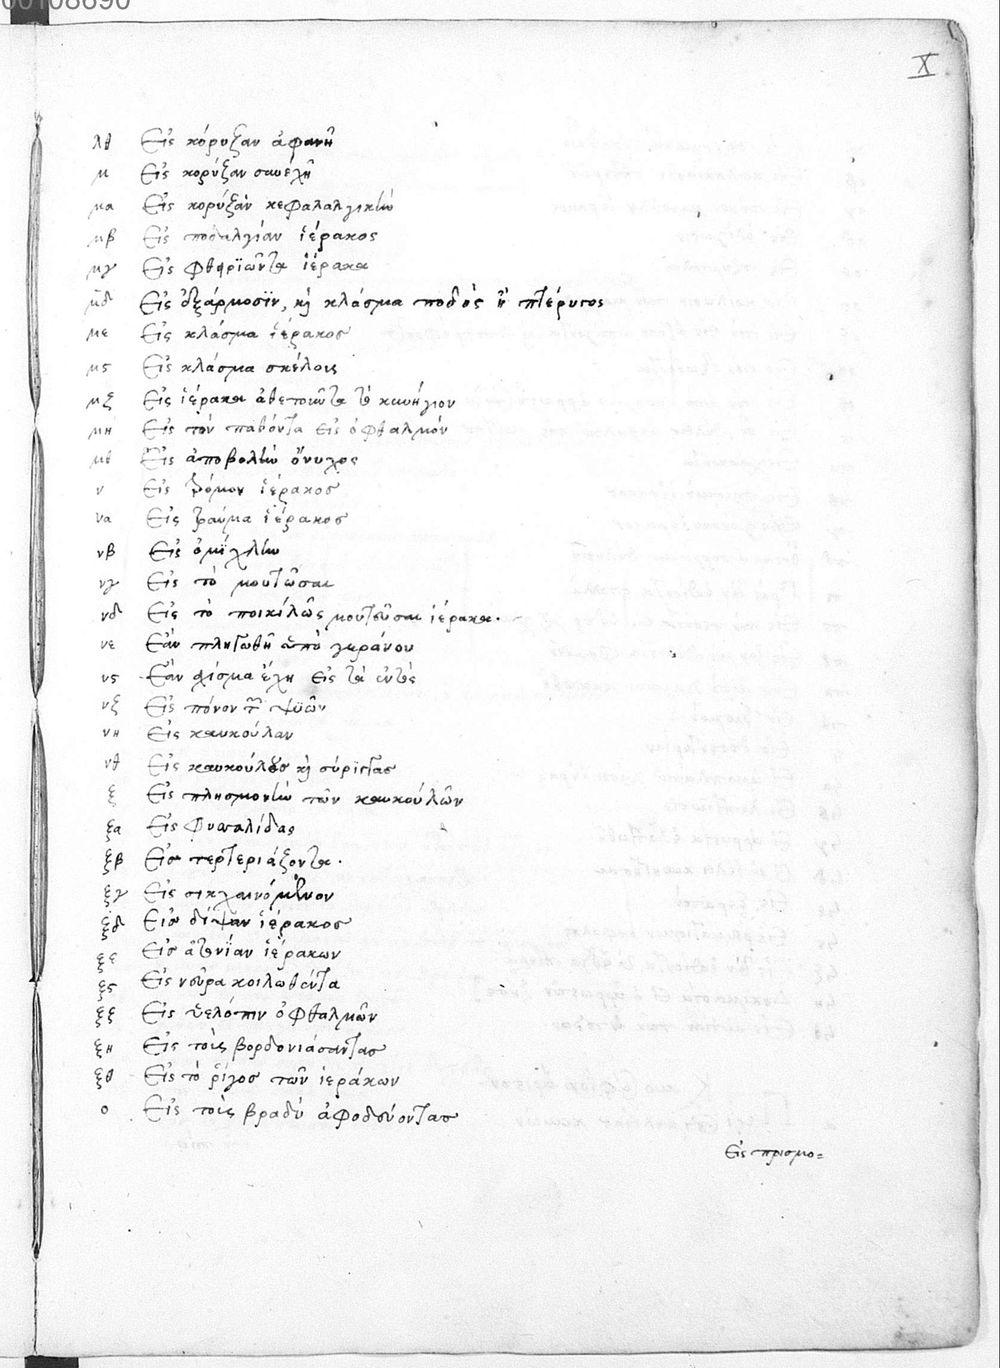 00108690
X
λθ Εἰς κόρυξαν ἀφανῆ
μ Εἰς κορύξαν συνεχῆ
μα Εἰς κορύξαν κεφαλαλγικὴν
μβ Εἰς ποδαλγίαν ἱέρακος
μγ Εἰς φθηριῶντα ἱέρακα
μδ Εἰς ἐξάρμοσιν, κὴ κλάσμα ποδὸς ἢ πτέρυγος
με Εἰς κλάσμα ἱέρακος
μς Εἰς κλάσμα σκέλους
μξ Εἰς ἱέρακα ἀθετοῦντα τὸ κυνήγιον
μη Εἰς τὸν παθόντα εἰς ὀφθαλμόν
μθ Εἰς ἀποβολὴν ὄνυχος
ν Εἰς τρόμον ἱέρακος
να Εἰς τραύμα ἱέρακος
νβ Εἰς ὀμίχλην
νγ Εἰς τὸ μουτεῦσαι
νδ Εἰς τὸ ποικίλως μουτεῦσαι ἱέρακα.
νε Ἐὰν πληγωθῆ ἀπὸ γεράνου
νς Ἐὰν χίσμα ἔχη εἰς τὰ ἐντὸς
νξ Εἰς πόνον τῶν ψυῶν
νη Εἰς καυκούλαν
νθ Εἰς καυκούλας κὴ σύριγγας
ξ Εἰς πλησμονὴν τῶν καυκούλων
ξα Εἰς φυσαλίδας
ξβ Εἰς τερτεριάζοντα.
ξγ Εἰς σικχαινόμενον
ξδ Εἰς δίψαν ἱέρακος
ξε Εἰς ἀτονίαν ἱέρακων
ξς Εἰς νεῦρα κοιλωθέντα
ξξ Εἰς ὑελόπιν ὀφθαλμῶν
ξη Εἰς τοὺς βορδονιάσαντας
ξθ Εἰς τὸ ῥίγος τῶν ἱεράκων
ο Εἰς τοὺς βραδὺ ἀφοδεύοντας
Εἰς πρισμο=